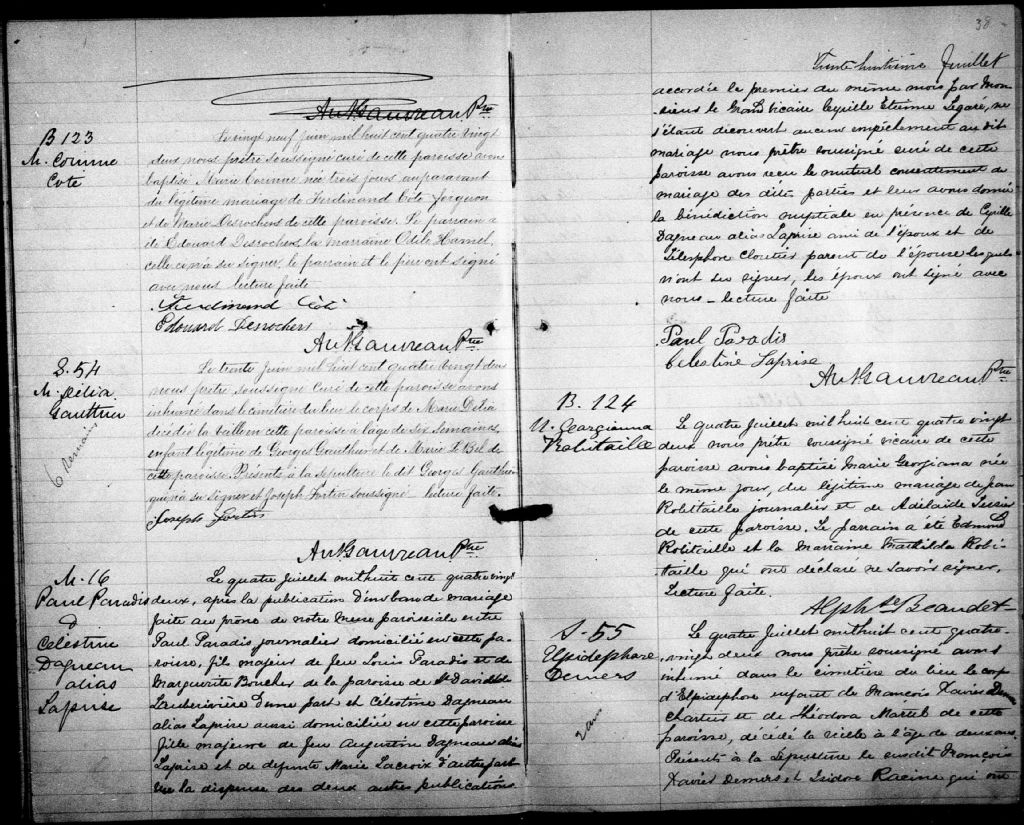 Ant Gauvreau Ptre
B 123
M. Corinne
Coté
Le vingt neuf Juin mil huit cent quatre vingt
deux nous prêtre soussigné curé de cette paroisse avons
baptisé Marie Corinne née trois jours auparavant
du légitime mariage de Ferdinand Coté forgeron
et de Marie Desrochers de cette paroisse. Le parrain a
été Edouard Desrochers, la marraine Odile Hamel,
celle ci n'a su signer, le parrain et le père ont signé
avec nous lecture faite
Ferdinand Coté
Edouard Desrochers
Ant Gauvreau Ptre
S. 54
M. Délia
Gauthier
6 semaines
Le trente Juin mil huit cent quatre vingt deux
nous prêtre soussigné curé de cette paroisse avons
inhumé dans le cimetière du lieu le corps de Marie Délia
décédée la veille en cette paroisse à l'age de six semaines,
enfant légitime de Georges Gauthier et de Marie LeBel de
cette paroisse. Présents à la sépulture le dit Georges Gauthier
qui n'a su signer et Joseph Fortin soussigné lecture faite.
Joseph Fortin
Ant Gauvreau Ptre
M. 16
Paul Paradis
&
Celestine
Dagneau
alias
Laprise
Le quatre Juillet mil huit cent quatre vingt
deux, après la publication d'un ban de mariage
faite au prone de notre messe paroissiale entre
Paul Paradis journalier domicilié en cette pa-
roisse, fils majeur de feu Louis Paradis et de
Marguerite Boucher de la paroisse de St David de
Lauberivière d'une part et Célestine Dagneau
alias Laprise aussi domiciliée en cette paroisse
fille majeure de feu Augustin Dagneau alias
Laprise et de defunte Marie Lacroix d'autre part
vu la dispense des deux autres publications
38
Trente huitième feuillet
accordée le premier du même mois par Mon-
sieur le Grand Vicaire Cyrille Etienne Légaré, ne
s'étant découvert aucun empêchement au dit
mariage nous prêtre soussigné curé de cette
paroisse avons reçu le mutuel consentement de
mariage des dites parties et leur avons donné
la bénédiction nuptiale en présence de Cyrille
Dagneau alias Laprise ami de l'époux et de
Télesphore Cloutier parent de l'épouse lesquels
n'ont su signer, les époux ont signé avec
nous - lecture faite
Paul Paradis
Celestine Laprise
Ant Gauvreau Ptre
B. 124
M. Georgianna
Robitaille
Le quatre Juillet mil huit cent quatre vingt
deux nous prêtre soussigné vicaire de cette
paroisse avons baptisé Marie Georgiana née
le même jour, du légitime mariage de Jean
Robitaille journalier et de Adélaide Tessier
de cette paroisse. Le parrain a été Edmond
Robitaille et la marraine Mathilda Robi-
taille qui ont déclaré ne savoir signer,
Lecture faite.
Alph. Beaudet
S-55
Elpidephore
Demers
2 ans
Le quatre Juillet mil huit cent quatre-
vingt deux nous prêtre soussigné avons
inhumé dans le cimetière du lieu le corps
d'Elpidephore enfant de François Xavier Demers
charretier et de Théodora Martel de cette
paroisse, décédé la veille à l'âge de deux ans.
Présents à la sépulture le susdit François
Xavier Demers et Isidore Racine qui ont